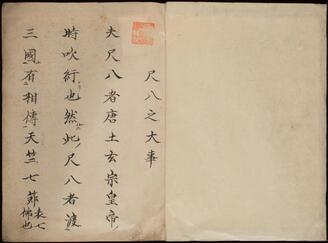 尺八之大事
夫尺八者唐土玄宗皇帝ノ
時吹行也然此尺八者渡
三國有相傳天竺七節表七
佛也